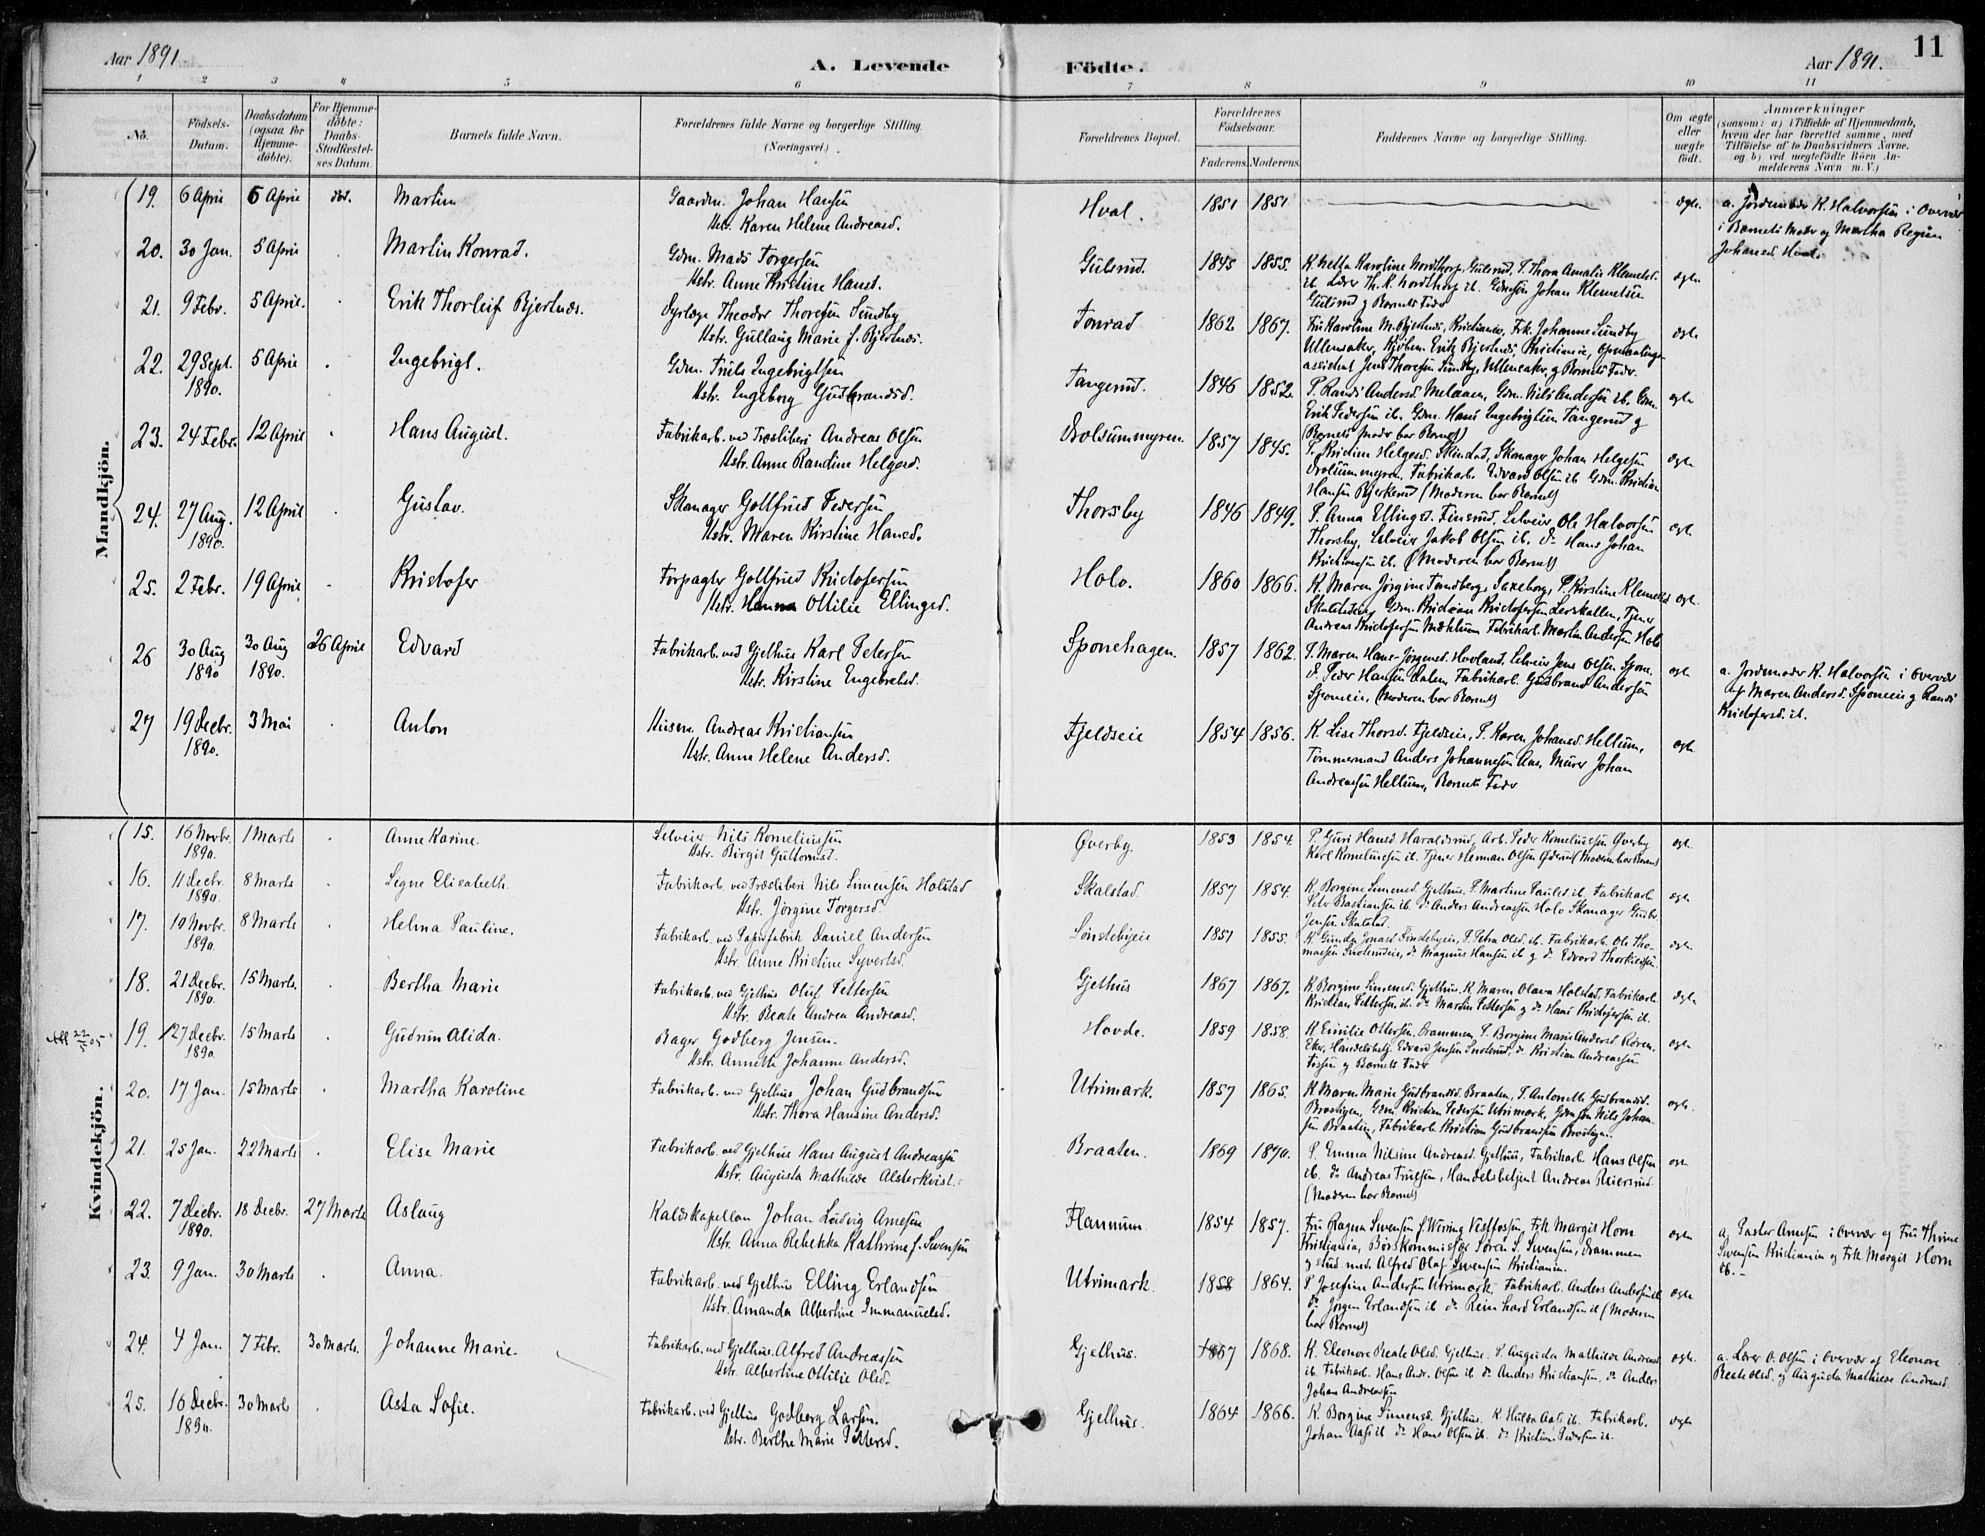 Aar 1891. A. Levende Födte. Aar 1891. 11
1 2 3 4 5 6 7 8 9 10 11
No. Födsels-Datum. Daabsdatum (ogsaa for Hjemme-döbte). For Hjemme-döbte: Daabs-Stadfæstel-ses Datum. Barnets fulde Navn. Forældrenes fulde Navne og borgerlige Stilling. (Næringsvei.) Forældrenes Bopæl. Forældrenes Födselsaar. Faderens. Moderens. Faddernes Navne og borgerlige Stilling. Om ægte eller uægte födt. Anmærkninger (saasom: a) i Tilfælde af Hjemmedaab, hvem der har forrettet samme, med Tilföielse af to Daabsvidners Navne. og b) ved uægtefödte Börn An-melderens Navn m. V.)
Mandkjön.
19. 6 April 6 April död. Martin Gaardm. Johan Hansen Hval. 1851 1851 ægte. a. Jordemoder K. Halvorsen i Overvær
Hstr. Karen Helene Andreasd. i Barnets Moder og Martha Regine
Johansd. Hval.
20. 30 Jan. 5 April Martin Konrad. Gdm. Mads Torgersen Gulsrud. 1845 1855. K. Netta Karoline Nordthorp, Gulsrud, P. Thora Amalie Klemetsd. ægte.
Hstr. Anne Kristine Hansd. ib. Lærer Th. K. Nordthorp ib. Gdmsøn Johan Klemetsen
Gulsrud og Barnets Fader
21. 9 Febr. 5 April. Erik Thorleif Bjertnæs. Dyrlæge Theodor Thoresen Sundby Tonrad 1862 1867. Fru Karoline M. Bjertnæs, Kristiania, Frk. Johanne Sundby ægte
Hstr. Gullaug Marie f. Bjertnæs. Ullensaker, Kjøbm. Erik Bjertnæs Kristiania,
assistent Jens Thoresen Sundby, Ullensaker, og Barnets Fader.
22. 29 Sept. 1890. 5 April Ingebrigt. Gdm. Truls Ingebrigtsen Tangerud. 1846 1852. P. Randi Andersd. Melaaen, Gdm. Nils Andersen ib. Gdm. ægte
Hstr. Ingeborg Gudbrandsd. Erik Pedersen ib. Gdm. Hans Ingebrigtsen Tangerud og
(Barnets Moder bar Barnet)
23. 24 Febr. 12 April Hans August. Fabrikarb. ved Træsliberi Andreas Olsen Drolsummyren. 1857 1845. P. Kristine Helgesd. Skinstad, Skomager Johan Helgesen ægte
Hstr. Anne Randine Helgesd. Drolsummyren, Fabrikarb. Edvard Olsen ib. Gdm. Kristian
Hansen Bjerkerud (Moderen bar Barnet)
24. 27 Aug. 1890. 12 April Gustav. Skomager Gottfried Pedersen Thorsby 1846 1849. P. Anna Ellingsd. Finsrud, Selveier Ole Halvorsen ægte
Hstr. Maren Kirstine Hansd. Thorsby, Selveier Jakob Olsen ib. do Hans Johan
Kristiansen ib. (Moderen bar Barnet)
25. 2 Febr. 19 April Kristofer Forpagter Gottfried Kristofersen Holo. 1860 1866. K. Maren Jørgine Sundberg, Saxeborg, P. Kirstine Klemetsd. ægte.
Hstr. Hanna Ottilie Ellingsd. Gdm. Kristian Kristofersen Lerskallen, Tjener
Andreas Kristofersen Mæhlum Fabrikarb. Martin Andersen Holo
26 30 Aug 1890 30 Aug 1890. 26 April Edvard Fabrikarb. ved Gjethus Karl Petersen Sponehagen. 1857 1862. P. Maren Hans-Jørgensd. Hovland, Selveier Jens Olsen Spone. ægte a. Jordemoder K. Halvorsen i Overvær
Hstr. Kirstine Engebretsd. d. Peder Hansen Dalen, Fabrikarb. Gudbrand Andersen af Maren Andersd. Sponeeie og Randi
Sponeeie, (Moderen bar Barnet) Kristofersd. ib.
27 19 Decbr. 1890. 3 Mai Anton Husm. Andreas Kristiansen Fjeldseie 1854 1856. K. Lise Thorsd. Fjeldseie, P. Karen Johansd. Hellum, ægte
Hstr. Anne Helene Andersd. Tømmermand Anders Johannesen Aas, Murer Johan
Andreassen Hellum, Barnets Fader
Kvindekjön.
15. 16 Novbr. 1890. 1 Marts Anne Karine. Selveier Nils Korneliussen Øverby. 1853 1854. P. Guri Hansd Haraldsrud, Arb. Peder Korneliussen Øverby ægte.
Hstr. Birgit Guttormsd. Karl Korneliussen ib. Tjener Herman Olsen Øderud (Moderen bar Barnet)
16. 11 Decbr. 1890. 8 Marts Signe Elisabeth. Fabrikarb. ved Træsliberi Nils Simensen Holstad Skalstad. 1857 1854. K. Borgine Simensd. Gjethus. P. Martine Paulsd. ib. Fabrikarb. ægte
Hstr. Jørgine Torgersd. Peter Bastiansen ib. do Anders Andreassen Holo Skomager Gustav
Jensen Skalstad.
17. 19 Novbr. 1890. 8 Marts Helma Pauline. Fabrikarb. ved Papirfabrik Daniel Andersen Sønstebyeie 1851 1855. K. Gunda Jonasd. Søndebyeie, P. Petra Olsd. ib. Fabrikarb. Ole Tho- ægte
Hstr. Anne Kristine Syvertsd. massen do Magnus Hansen ib. og do Edvard Thorkildsen.
18. 21 Decbr. 1890. 15 Marts. Bertha Marie Fabrikarb. ved Gjethus Oluf Pettersen Gjethus 1867 1867. K. Borgine Simensd. Gjethus, K. Maren Olava Holstad, Fabrikarb. ægte
Hstr. Beate Andrea Andreasd. Kristian Pettersen ib. do Martin Pettersen og do Hans Kristofersen ib.
19. 27 Decbr. 1890. 15 Marts Gudrun Alida. Bager Godberg Jensen. Hovde. 1859 1858. K. Emilie Ottersen, Drammen, P. Borgine Marie Andersd. Røren. ægte
Hstr. Annette Johanne Andersd. Eker, Handelsbetj. Edvard Jensen Snolsrud, do Kristian Andreassen
Fossen og Barnets Fader
20. 17 Jan. 15 Marts Martha Karoline Fabrikarb. ved Gjethus Johan Gudbrandsen Utrimark. 1857 1865. K Maren Marie Gudbrandsd. Braaten, P. Antonette Gudbrandsd. ægte.
Hstr. Thora Hansine Andersd. Brastigen, Gdm. Kristian Pedersen Utrimark, Gdmsøn Nils Johan-
sen Braaten, Fabrikarb. Kristian Gudbrandsen Brastigen.
21. 25 Jan. 22 Marts Elise Marie Fabrikarb. ved Gjethus Hans August Andreassen Braaten. 1869 1870. P. Emma Nilsine Andreasd. Gjethus, Fabrikarb. Hans Olsen
Hstr. Augusta Mathilde Alsterkvist. ib. do Andreas Truesen, Handelsbetjent Andreas Reiersrud.
(Moderen bar Barnet)
22. 7 Decbr. 1890. 18 Decbr. 27 Marts Aslaug Kaldskapellan Johan Ludvig Arnesen Flannum. 1854 1857. Fru Ragna Svensen f. Wæring Vestfossen, Frk Margit Horn ægte a. Pastor Arnesen i Overvær af Fru Thrine
Hstr. Anna Rebekka Kathrine f. Svensen Kristiania, Børskommissær Søren S. Svensen, Drammen Svensen Kristiania og Frk Margit Horn
og stud. med. Alfred Olaf Svensen Kristiania. ib. -
23. 9 Jan. 30 Marts Anna. Fabrikarb. ved Gjethus Elling Erlandsen Utrimark. 1858 1864. P Josefine Andersen Utrimark, Fabrikarb. Anders Andersen ib ægte
Hstr. Amanda Albertine Immanuelsd. do Jørgen Erlandsen ib do Reinhard Erlandsen ib (Moderen
bar Barnet)
24. 4 Jan. 7 Febr. 30 Marts. Johanne Marie. Fabrikarb. ved Gjethus. Alfred Andreassen Gjethus. 1867 1868. K. Eleonore Beate Olsd. Gjethus. P. Augusta Mathilde Andreasd. ægte. a. Lærer O. Olsen i Overvær af Eleonore
Hstr. Albertine Ottilie Olsd. ib. Fabrikarb. Hans Andr. Olsen ib do Anders Kristiansen, do Anders Beate Olsd. og Augusta Mathilde Andreasd.
Johan Andreassen
25. 16 Decbr. 1890. 30 Marts Asta Sofie. Fabrikarb. ved Gjethus Godberg Larsen. Gjethus. 1864 1866. K. Borgine Simensd. Gjethus. K. Hulda Aas ib. Fabrikarb. ægte
Hstr. Berthe Marie Pettersd. Johan Aas ib do Hans Olsen ib. do Kristian Pedersen ib.